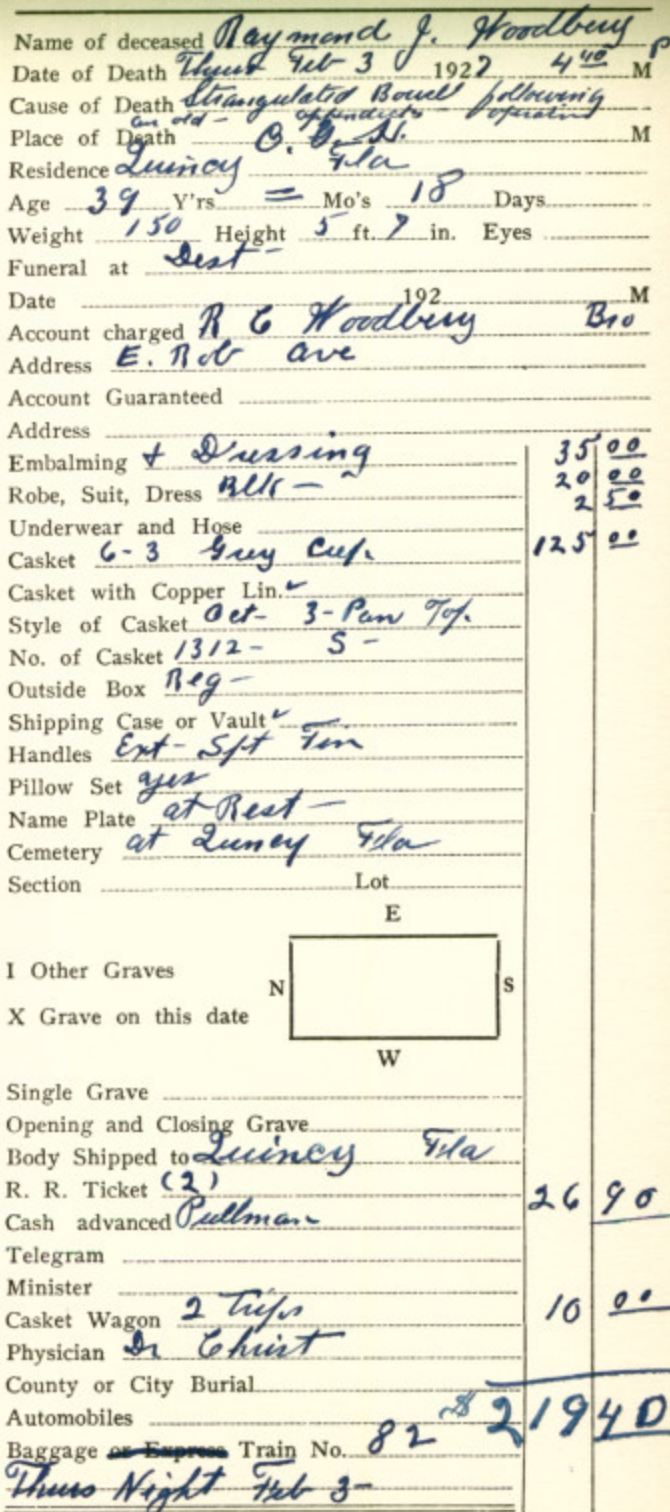 Name of deceased Raymond J. Woodbery
Date of Death Thurs Feb 3 1927 4 40 P M
Cause of Death Strangulated Bowell following
an old - appendicitis operation
Place of Death O. G. H. M
Residence Quincy Fla
Age 39 Y'rs = Mo's 18 Days
Weight 150 Height 5 ft. 7 in. Eyes
Funeral at Dest -
Date 192 M
Account charged R C Woodbery Bro
Address E. Rob ave
Account Guaranteed
Address
Embalming & Dressing 35 00
Robe, Suit, Dress Blk - 20 00
2 50
Underwear and Hose
Casket 6-3 Grey Crep. 125 00
Casket with Copper Lin. ✓
Style of Casket Oct- 3-Pan Top.
No. of Casket 1312- S -
Outside Box Reg -
Shipping Case or Vault ✓
Handles Ext- Spt Tin
Pillow Set yes
Name Plate at Rest -
Cemetery at Quncy Fla
Section Lot
E
I Other Graves
N S
X Grave on this date
W
Single Grave
Opening and Closing Grave
Body Shipped to Quincy Fla
R. R. Ticket (2) 26 90
Cash advanced Pullman
Telegram
Minister
Casket Wagon 2 Trips 10 00
Physician Dr Christ
County or City Burial
Automobiles $ 219 40
Baggage or Express Train No. 82
Thurs Night Feb 3-